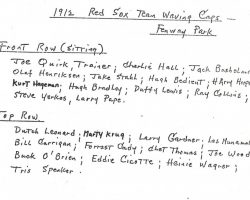 1912 Red Sox Team Waving Caps -
Fenway Park
Front Row (Sitting)
Joe Quirk, Trainer; Charlie Hall; Jack Bushelman
Olaf Henriksen; Jake Stahl; Hugh Bedient; Harry Hooper
Kurt Hageman; Hugh Bradley; Duffy Lewis; Ray Collins;
Steve Yerkes; Larry Pape.
Top Row
Dutch Leonard; Marty Krug; Larry Gardner; Les Nunamaker
Bill Carrigan; Forrest Cady; Chet Thomas; Joe Wood
Buck O'Brien; Eddie Cicotte; Heinie Wagner;
Tris Speaker.